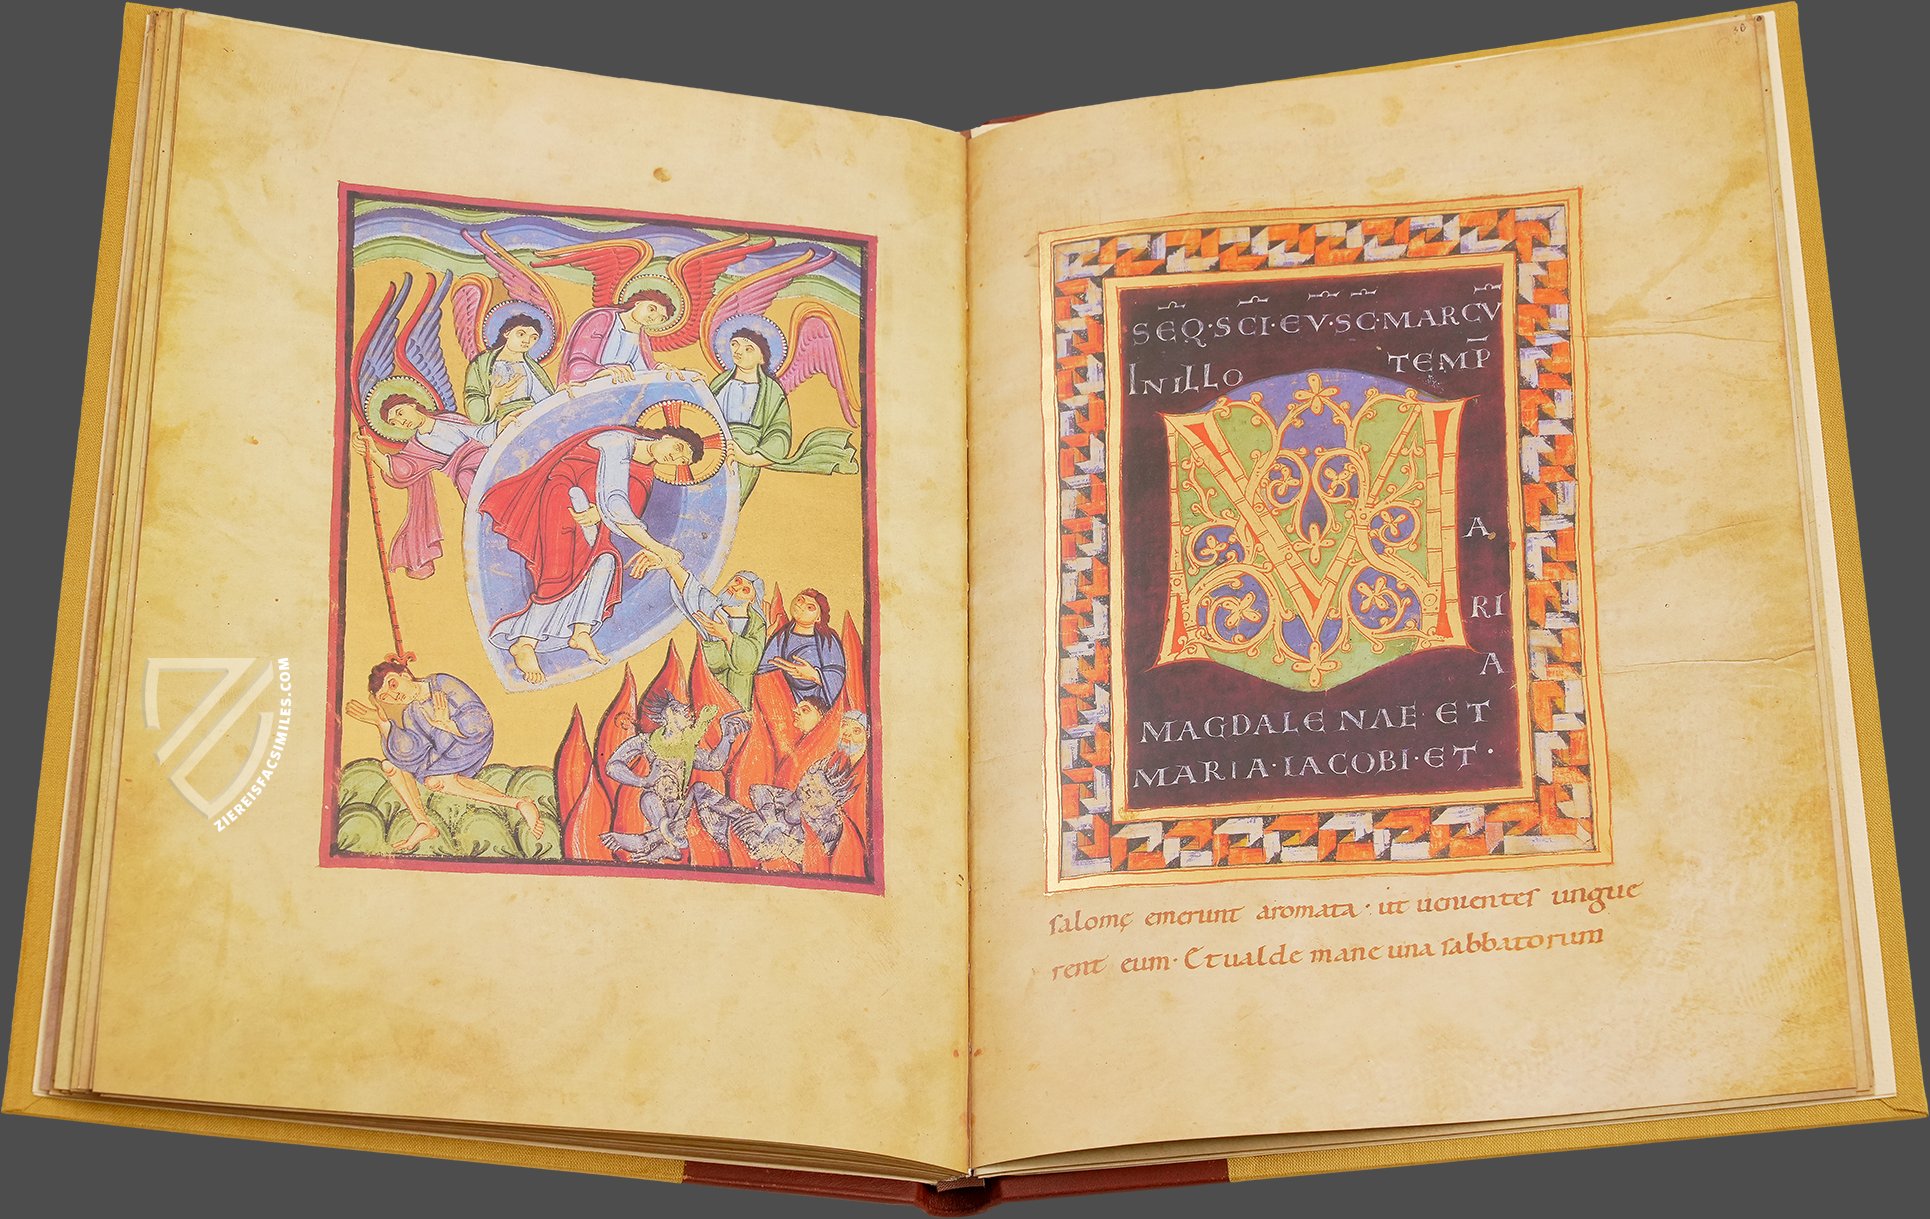 ZIEREISFACSIMILES.COM
38
SEQ·SCI·EV·SC·MARCV̅
IN ILLO TEMP̅
M
A
RI
A
MAGDALENAE ET
MARIA·IACOBI·ET·
salomę emerunt aromata· ut uenientes ungue
rent eum· Et ualde mane una sabbatorum